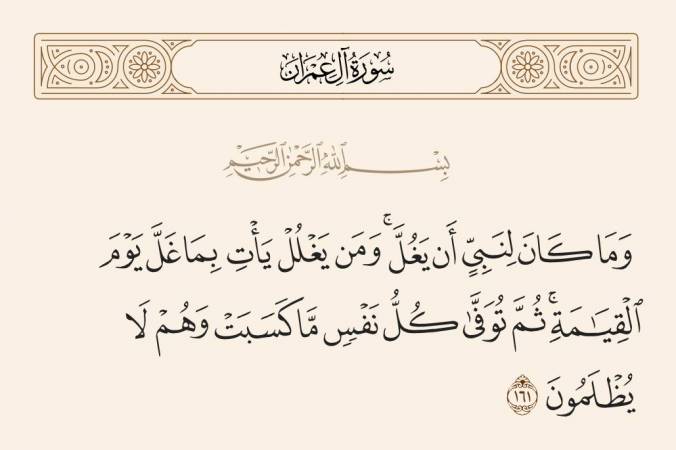 سُورَةُ آلِ عِمْرَانَ
بِسْمِ ٱللَّهِ ٱلرَّحْمَٰنِ ٱلرَّحِيمِ
وَمَا كَانَ لِنَبِيٍّ أَن يَغُلَّ ۚ وَمَن يَغْلُلْ يَأْتِ بِمَا غَلَّ يَوْمَ
ٱلْقِيَـٰمَةِ ۚ ثُمَّ تُوَفَّىٰ كُلُّ نَفْسٍ مَّا كَسَبَتْ وَهُمْ لَا
يُظْلَمُونَ ١٦١